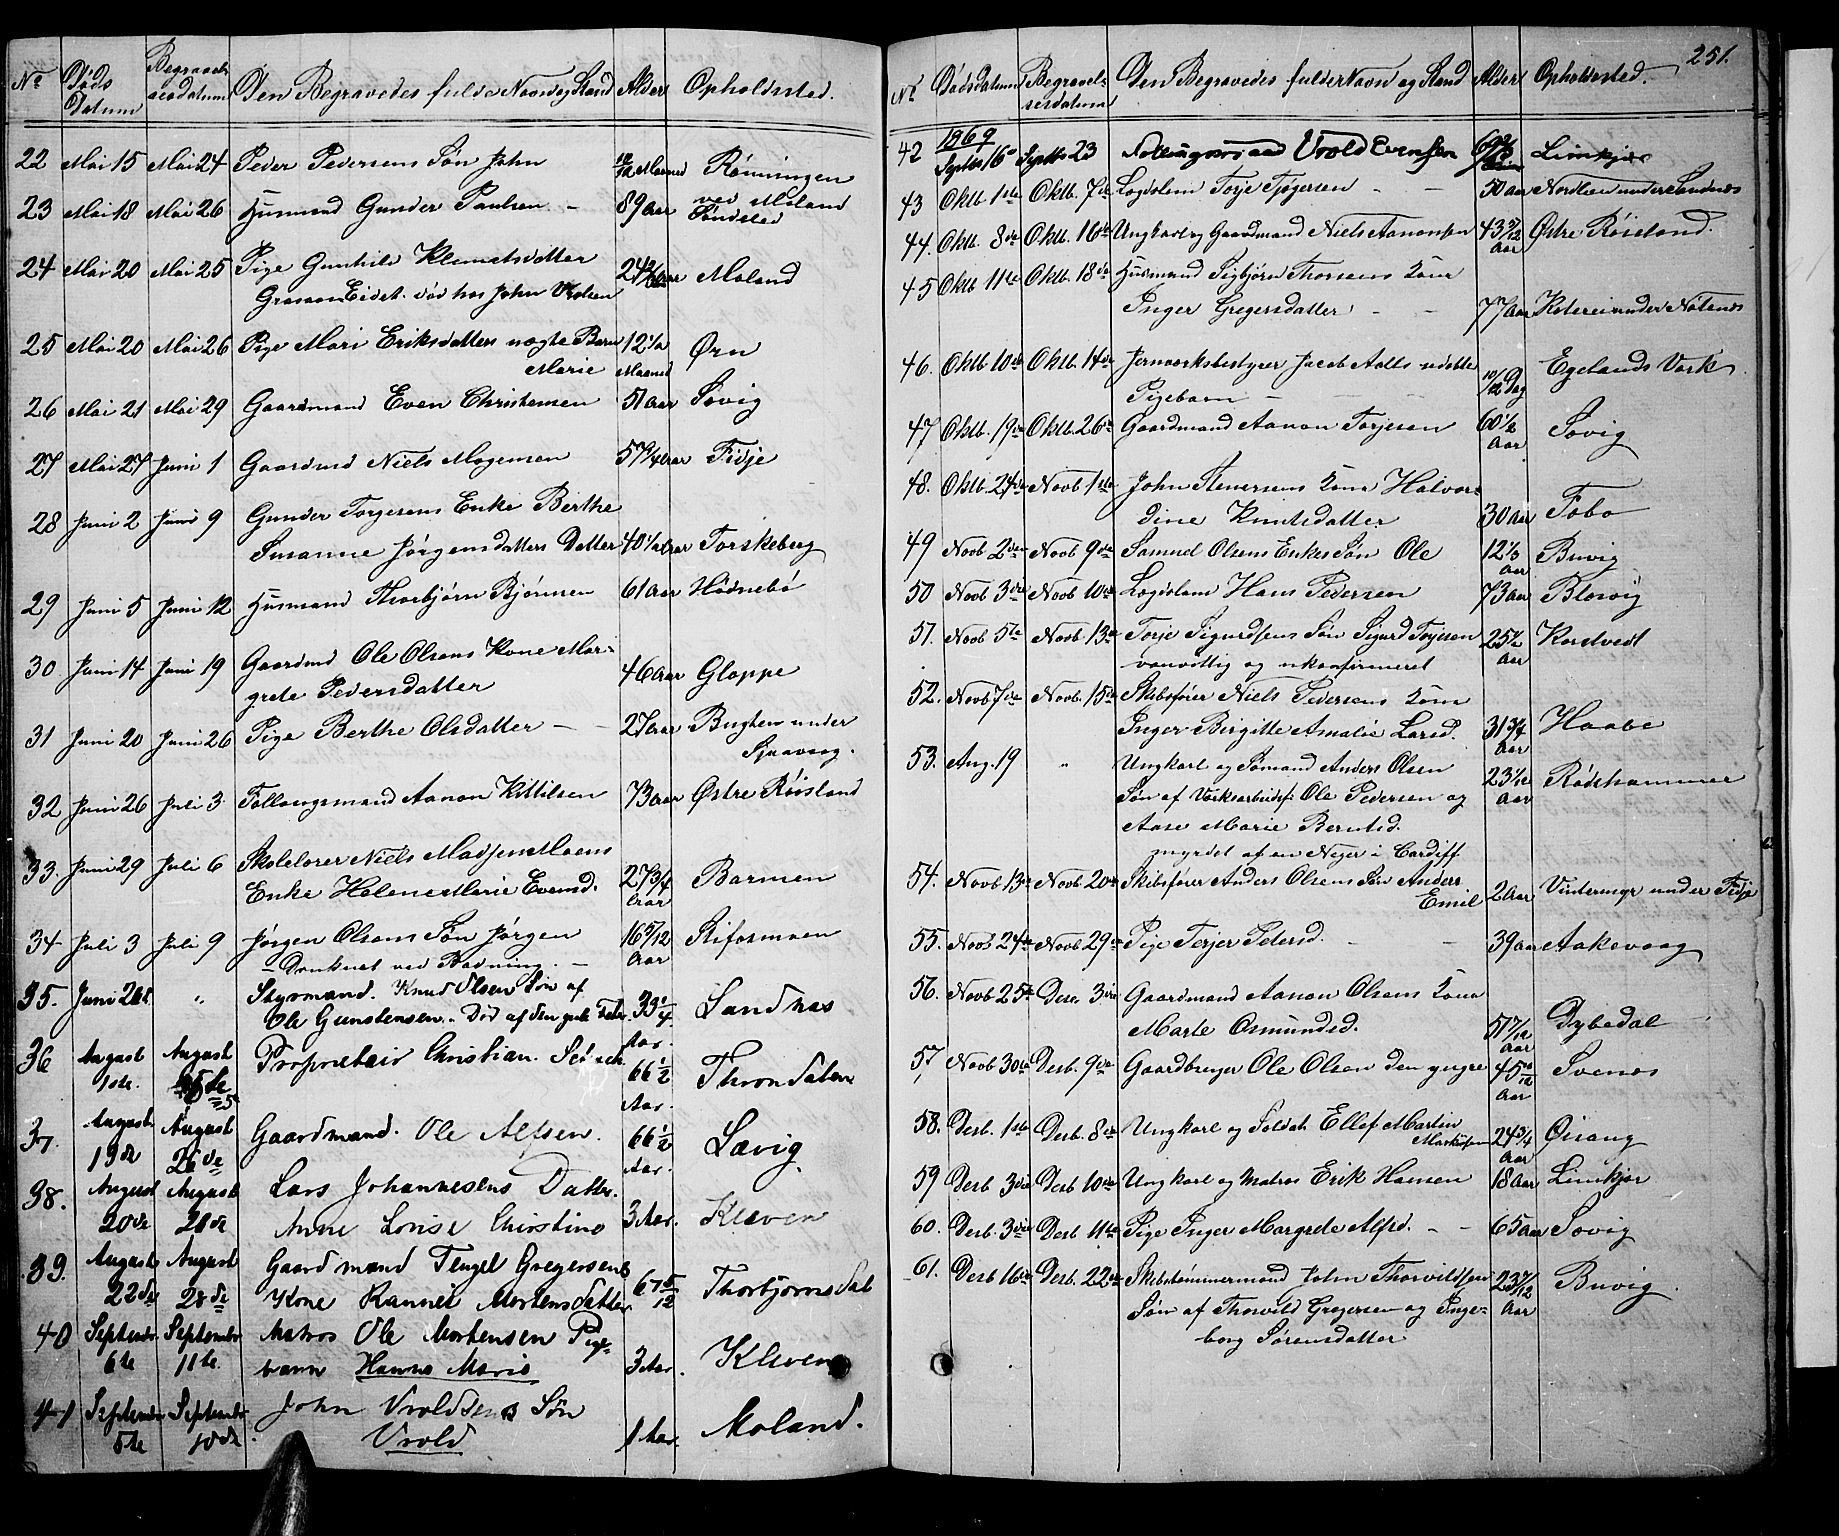 No Døds Datum Begravelsesdatum Den Begravedes fulde Navn og Stand Alder Opholdssted.
22 Mai 15 Mai 24 Peder Pedersens Søn John 10/12 Maaned Rønningen
ved Moland
23 Mai 18 Mai 26 Husmand Gunder Paulsen - 89 Aar Sundsted
24 Mai 20 Mai 25 Pige Gunhild Klemetsdatter 24 Aar Moland
Eidet. død hos John Vrolsen
25 Mai 20 Mai 26 Pige Mari Eriksdatters uægte Barn 12 1/2 Maaned Ørn
Marie
26 Mai 21 Mai 29 Gaardmand Even Christensen 51 Aar Søvig
27 Mai 27 Juni 1 Gaardmd Niels Mogensen 57 3/4 Aar Fidje
28 Juni 2 Juni 9 Gunder Torgersens Enke Berthe
Susanne Jørgensdatters Datter 40 1/2 Aar Torskeberg
29 Juni 5 Juni 12 Husmand Thorbjørn Bjørnsen 61 Aar Hødnebø
30 Juni 14 Juni 19 Gaardmd Ole Olsens Kone Mar-
grete Pedersdatter 46 Aar Gloppe
31 Juni 20 Juni 26 Pige Berthe Olsdatter - 27 Aar Bugten under
Sjaavaag.
32 Juni 26 Juli 3 Follaugsmand Aanon Kittilsen 73 Aar Østre Røisland
33. Juni 29 Juli 6 Skolelærer Niels Madsen Moens
Enke Helene Marie Evensd. 27 3/4 Aar Barmen
34 Juli 3 Juli 9 Jørgen Olsens Søn Jørgen 16 5/12 Aar Rifosmoen
- Druknet ved Badning. -
35. Juni 21st. " Styrmand. Knud Olsen Søn af
Ole Gunstensen. Død af den gule Feber. 33 1/4 Aar. Sandnæs
36 August 1ste. August 5te Proprietair Christian 66 1/2 Aar. Throndalen
37. August 19de August 26de Gaardmand. Ole Alfsen. 66 1/2 Aar. Søvig
38. August 20de August 28de Lars Johannesens Datter.
Anne Lovise Christine 3 Aar. Kleven
39. August 22de August 28de Gaardmand Tengel Gregersens
Kone Rannei Mortensdatter 67 5/12 Thorbjørnsdal
40 Septembr 6te Septembr 11te. Matros Ole Mortensen Pige-
barn Hanna Marie 3 Aar. Kleven
41 Septembr 5te Septembr 10de John Vroldsens Søn
Vrold 1 Aar. Moland.
251.
No Dødsdatum Begravelsesdatum Den Begravedes fulde Navn og Stand Alder Opholdssted.
1869
42 Septbr 16 Septbr 23 Vrold Evensen Limkjær
43 Oktb. 1ste Oktb. 7de Lægdslem Torje Tjøgersen - - 50 Aar Nordlien under Sandnæs
44. Oktb. 8de Oktb. 16de Ungkarl og Gaardmand Niels Aanonsen 43 5/12 Aar Østre Røisland.
45 Oktb 11te Oktb. 18de Husmand Sigbjørn Thorsens Kone
Inger Gregersdatter - - 77 Aar under Nøtenæs
46. Oktb 10de Oktb. 14de Jernværksbestyrer Jacob Aalls udøbte
Pigebarn - - 10/12 Dag Egelands Værk
47 Oktb. 19de Oktb. 26de Gaardmand Aanon Torjesen 60 1/2 Aar Søvig
48. Oktb. 24de Novb 1ste John Stenersens Kone Halvor-
dine Knutsdatter 30 Aar Fobo
49 Novb 2den Novb 9de Samuel Olsens Enkes Søn Ole 12 1/3 Aar Buvig
50 Novb 3die Novb 10de Lægdslem Hans Pedersen 73 Aar Blesvig
51. Novb 5te Novb 13de Torje Sigurdsens Søn Sigurd Torjesen 25 1/2 Aar Korstvedt
vanvittig og ukonfirmeret
52. Novb 7de Novb. 15de Skibsfører Niels Pedersens Kone
Inger Birgitte Amalie Larsd. 31 3/4 Aar Haabe
53. Aug. 19 " Ungkarl og Sømand Anders Olsen 23 1/12 Aar Rødshammer
Søn af Værksarbeidr Ole Pedersen og
Aase Marie Berntsd.
myrdet af en Neger i Cardiff
54. Novb 13de Novb 20de Skibsfører Anders Olsens Søn Anders
Emil 2 Aar Vintermyr under Fidje
55. Novb 24de Novb 29de Pige Terjer Petersd. - - 39 Aar Aakevaag
56. Novb 25de Desb 3die Gaardmand Aanon Olsens Kone
Marte Osmundsd. 51 7/12 Aar Dybedal
57 Novb 30te Desb. 9de Gaardbruger Ole Olsen den yngre 45 10/12 Aar Svenæs
58. Desb. 1ste Desb. 8de Ungkarl og Soldat Ellef Martin
Markusen 24 3/4 Aar Øivang
59 Desb 3die Desb 10de Ungkarl og Matros Erik Hansen 18 Aar Limkjær
60. Desb. 3die Desb 11te Pige Inger Margrete Alfsd. - - 65 Aar Søvig
61. Desb 16de Desb. 22de Skibstømmermand John Thorvildsen 23 7/12 Aar Buvig
Søn af Thorvild Gregersen og Inge-
borg Sørensdatter